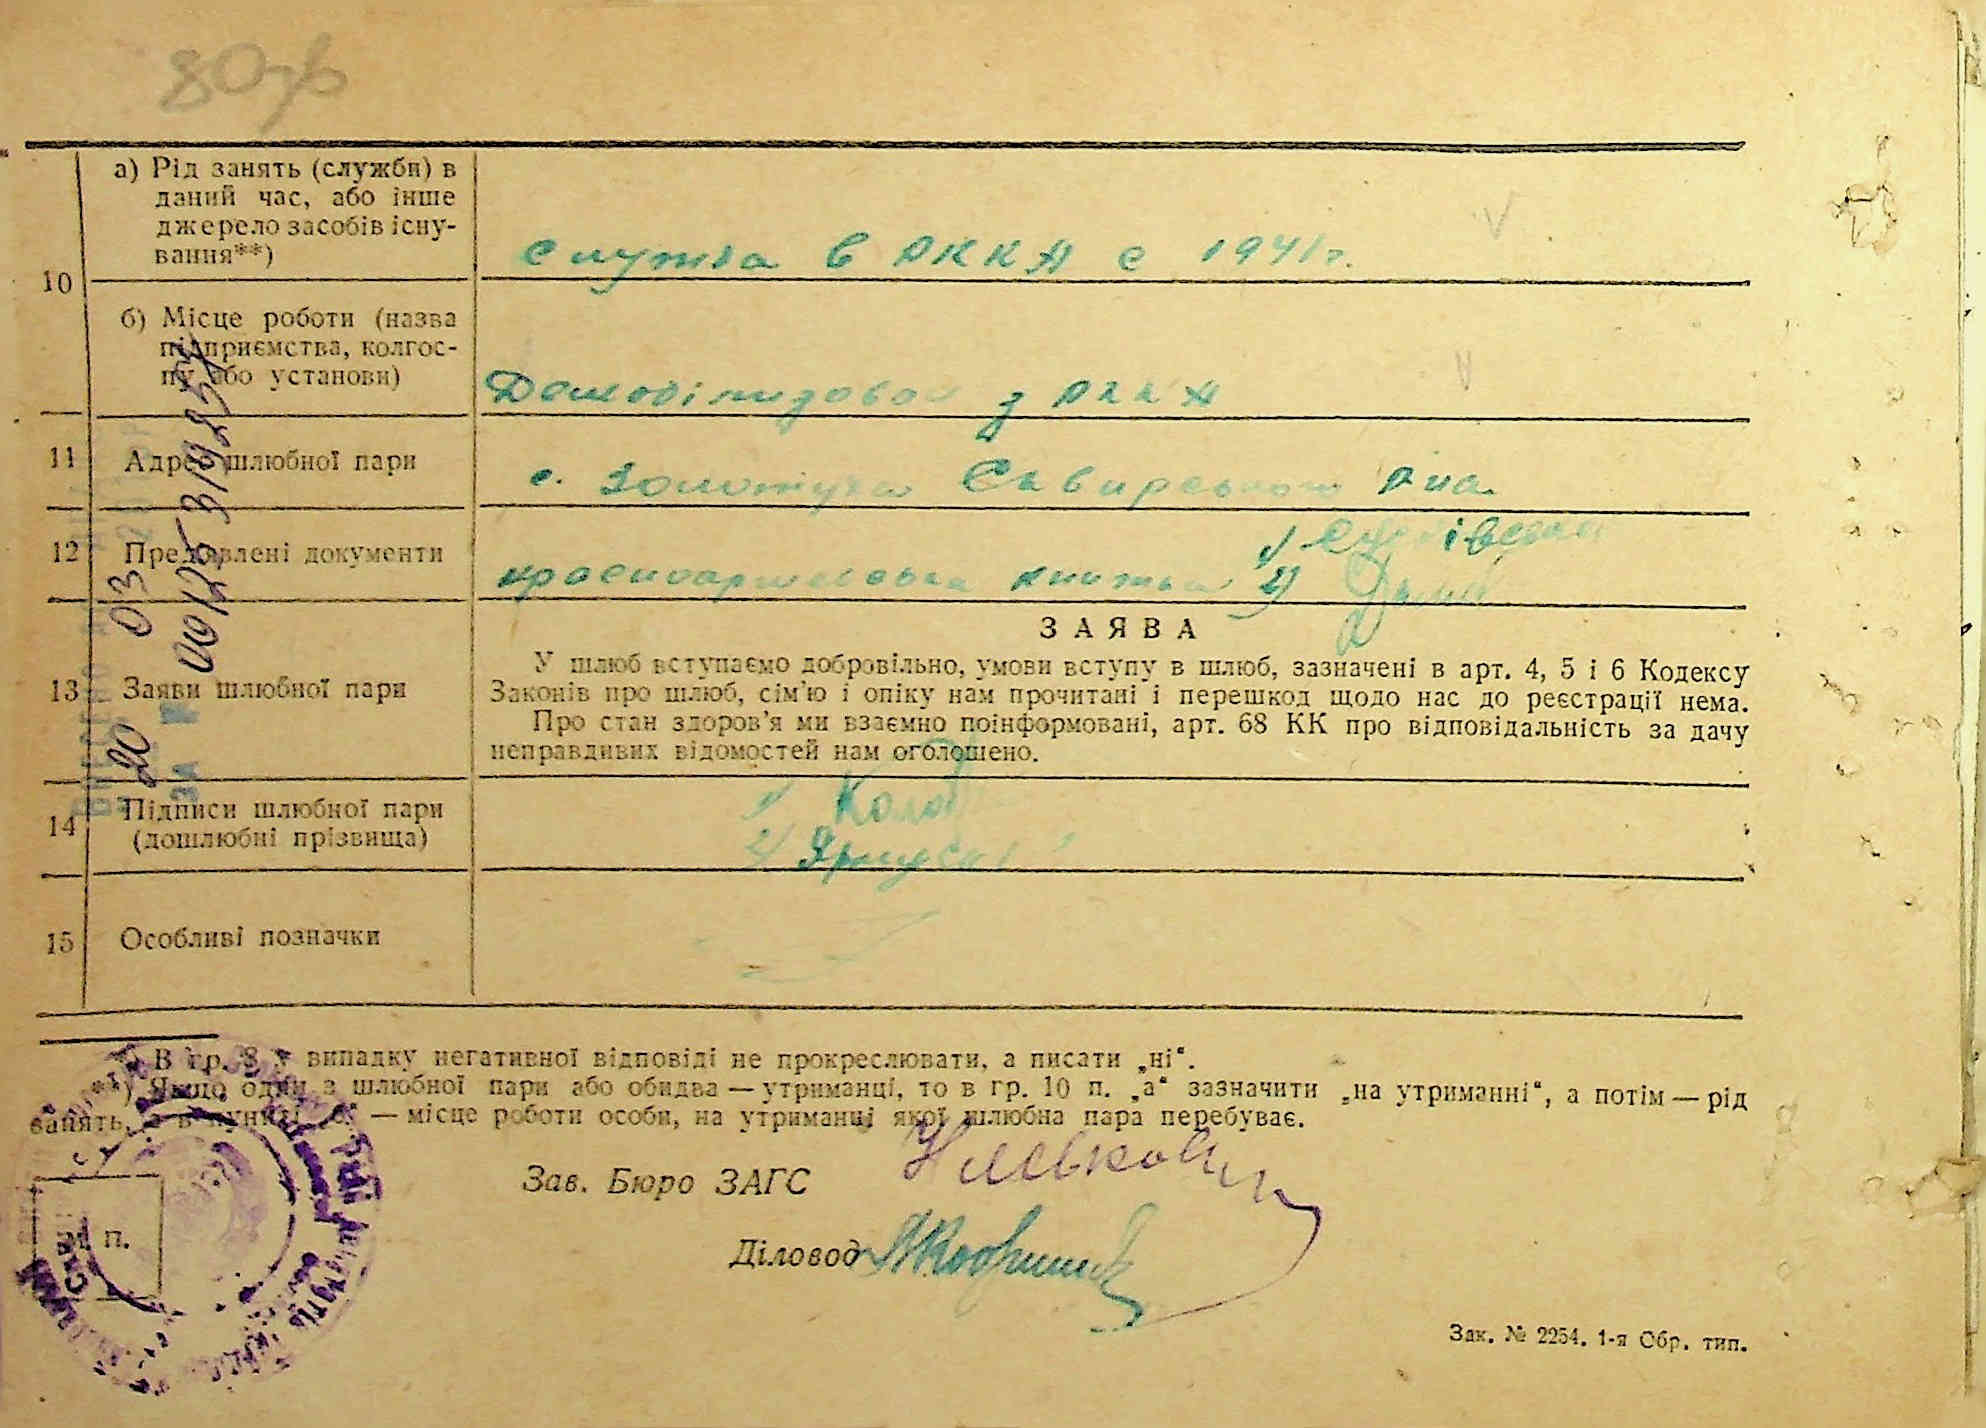 80зв
а) Рід занять (служби) в
даний час, або інше
джерело засобів існу-
вання**)
служба в РККА с 1941 г.
10
б) Місце роботи (назва
підприємства, колгос-
пу або установи)
з РККА
11 Адрес шлюбної пари
с. Золотуха Сквирського р-на
12 Пред'явлені документи
красноармейська книжка 1) 2)
ЗАЯВА
13 Заяви шлюбної пари
У шлюб вступаємо добровільно, умови вступу в шлюб, зазначені в арт. 4, 5 і 6 Кодексу
Законів про шлюб, сім'ю і опіку нам прочитані і перешкод щодо нас до реєстрації нема.
Про стан здоров'я ми взаємно поінформовані, арт. 68 КК про відповідальність за дачу
неправдивих відомостей нам оголошено.
14 Підписи шлюбної пари
(дошлюбні прізвища)
1)
2)
15 Особливі позначки
В гр. 8 у випадку негативної відповіді не прокреслювати, а писати „ні“.
**) Якщо один з шлюбної пари або обидва — утриманці, то в гр. 10 п. „а“ зазначити „на утриманні“, а потім — рід
занять, а в пункті „б“ — місце роботи особи, на утриманці якої шлюбна пара перебуває.
Зав. Бюро ЗАГС
Діловод
М. П.
Зак. № 2254. 1-я Обр. тип.
20 03